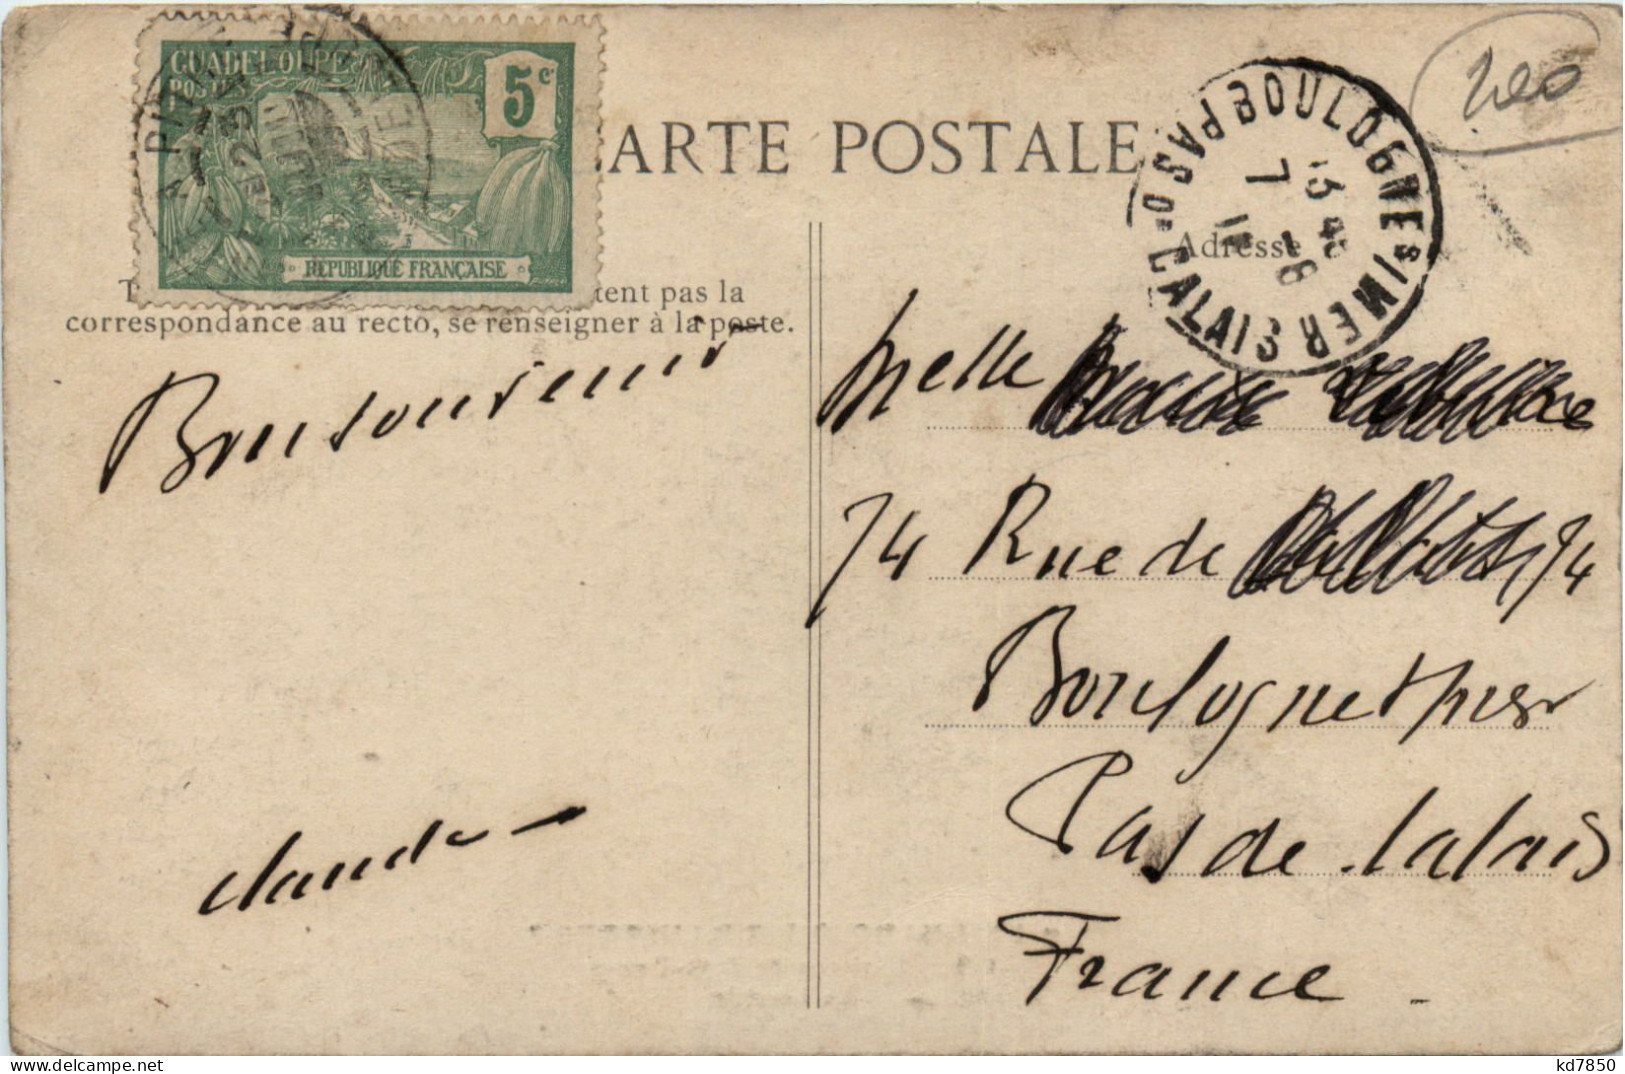 GUADELOUPE
POSTES
5 c
REPUBLIQUE FRANÇAISE
CARTE POSTALE
BOULOGNE S/MER
PAS-D-CALAIS
Adresse
200
tent pas la
correspondance au recto, se renseigner à la poste.
Bon souvenir
Claude
Melle
74 Rue de 74
Boulogne s/mer
Pas de Calais
France
kd7850